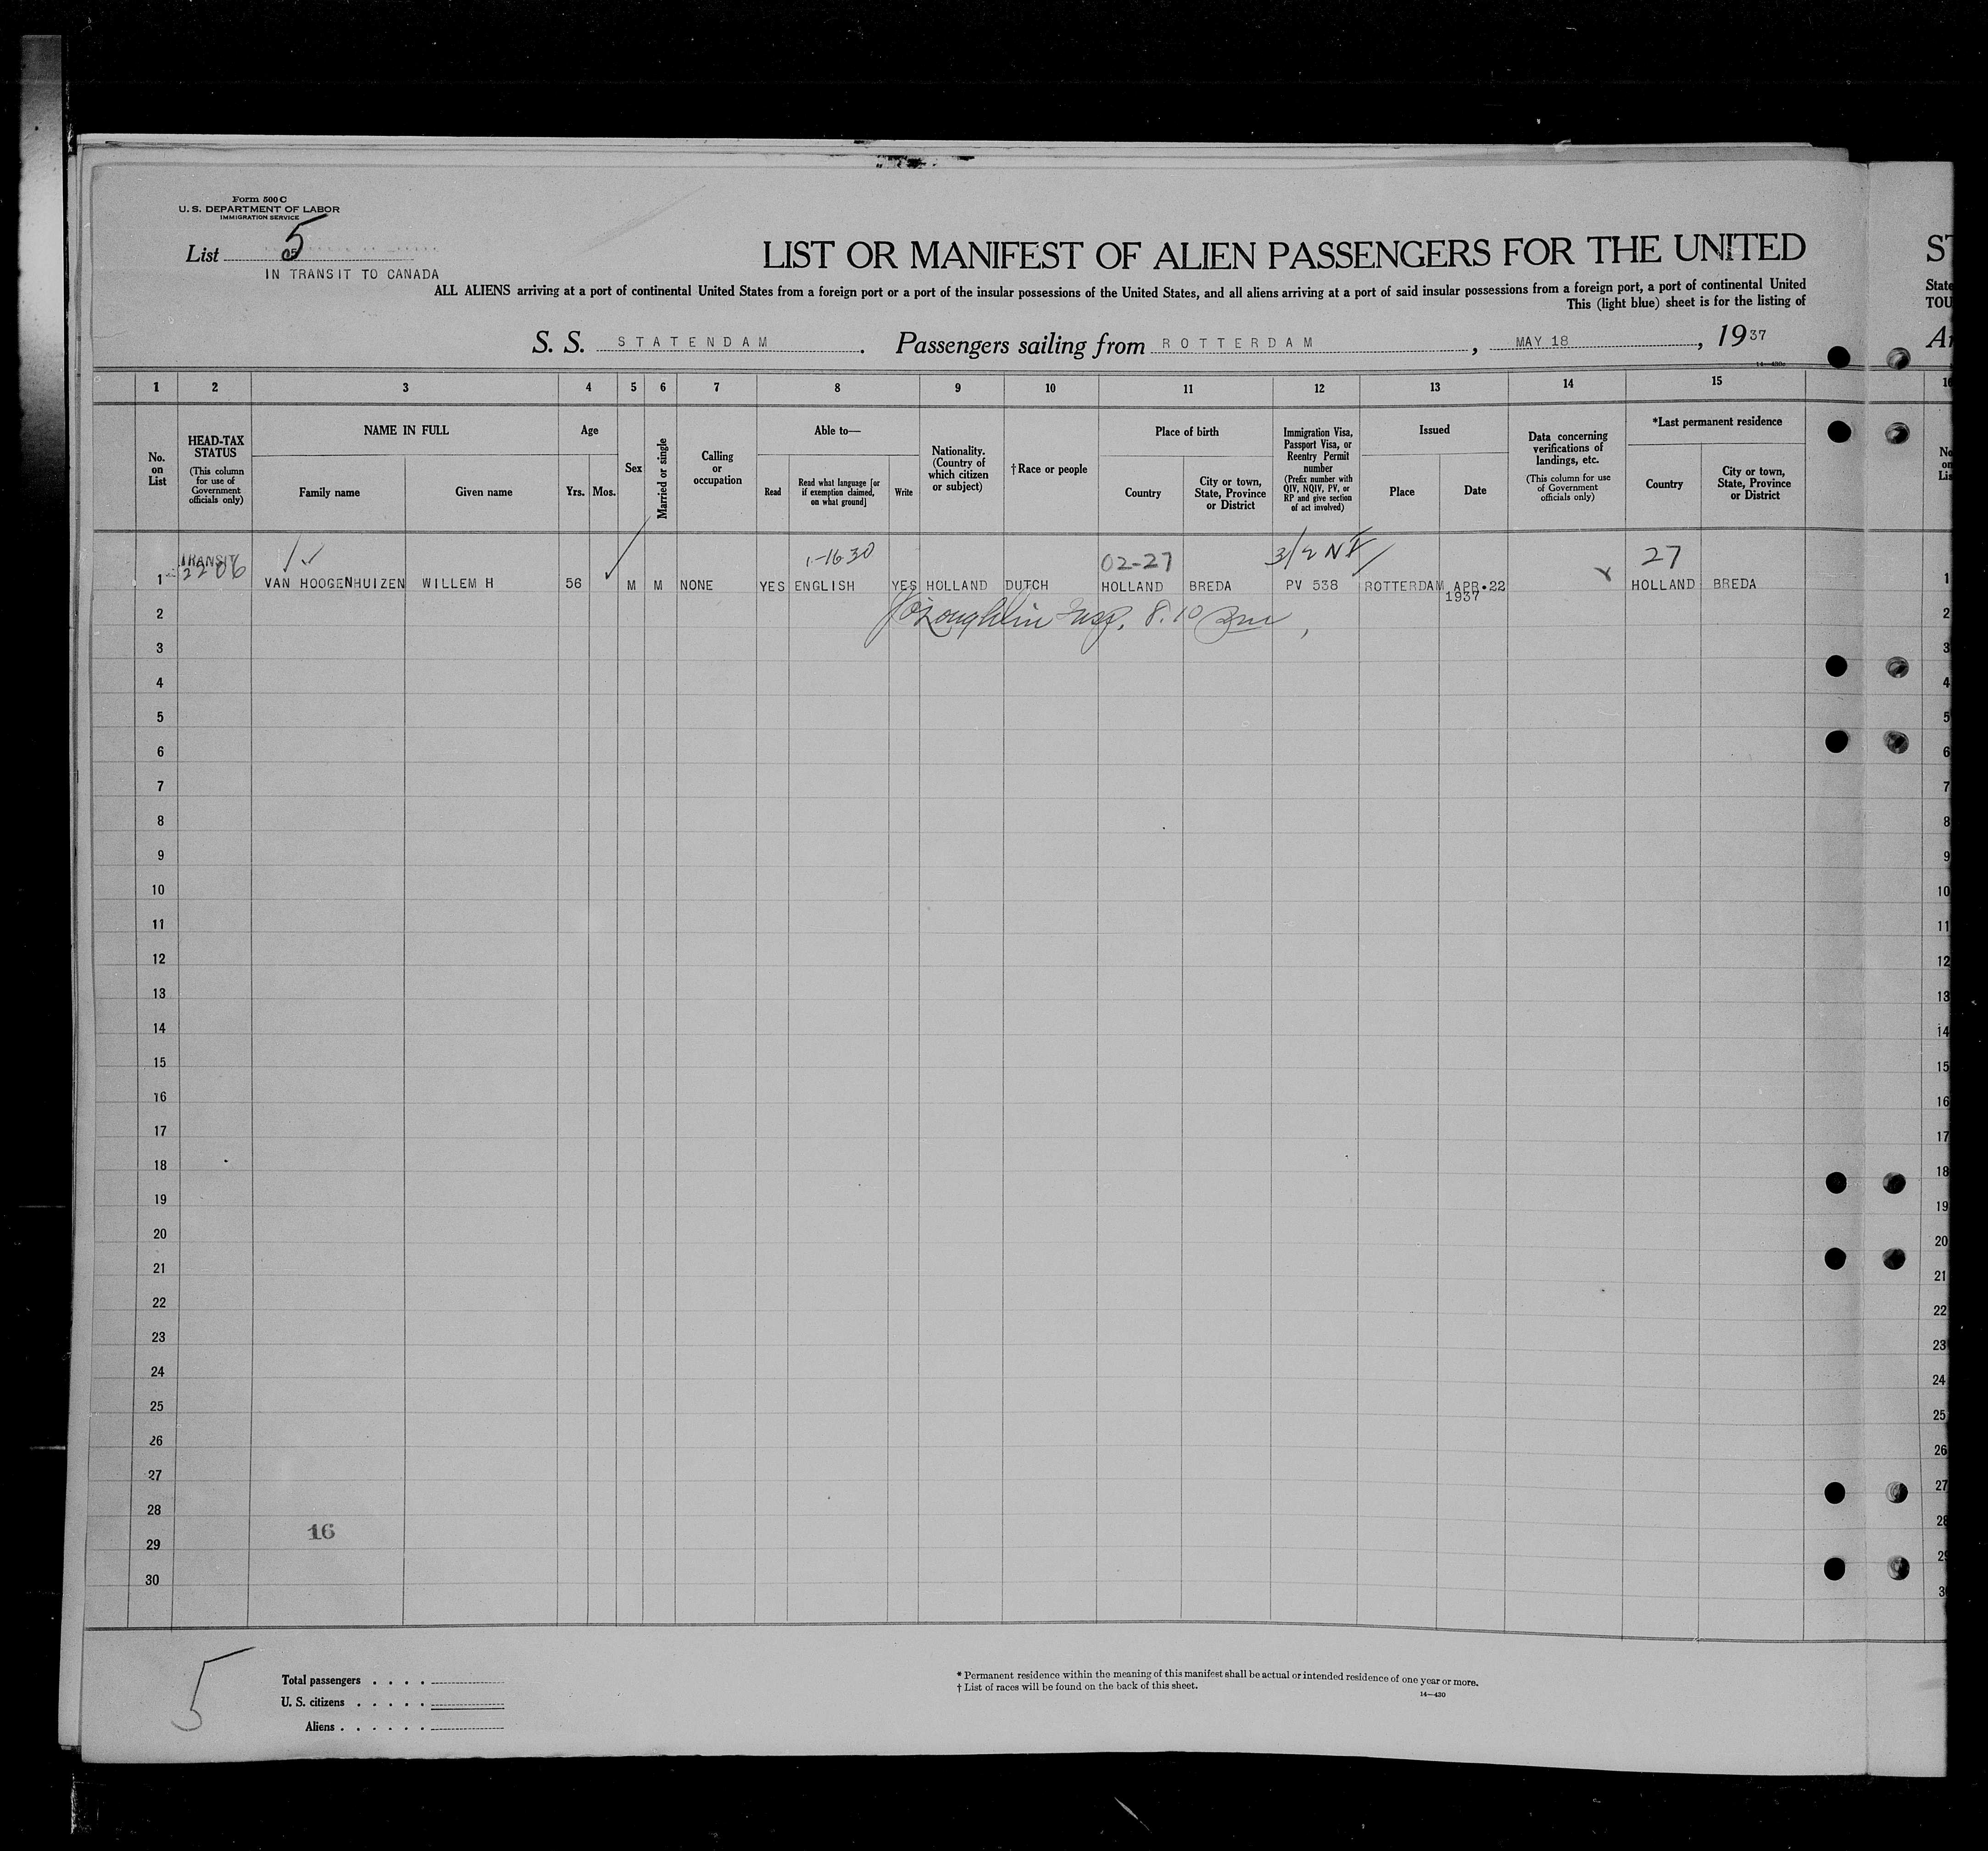 Form 500 C
U. S. DEPARTMENT OF LABOR
IMMIGRATION SERVICE
List 5
IN TRANSIT TO CANADA
LIST OR MANIFEST OF ALIEN PASSENGERS FOR THE UNITED
ST
ALL ALIENS arriving at a port of continental United States from a foreign port or a port of the insular possessions of the United States, and all aliens arriving at a port of said insular possessions from a foreign port, a port of continental United
State
This (light blue) sheet is for the listing of
TOU
S. S. STATENDAM. Passengers sailing from ROTTERDAM, MAY 18, 1937
14—430c
1 2 3 4 5 6 7 8 9 10 11 12 13 14 15
No. on List
HEAD-TAX STATUS
(This column for use of Government officials only)
NAME IN FULL
Family name
Given name
Age
Yrs. Mos.
Sex
Married or single
Calling or occupation
Able to—
Read
Read what language [or if exemption claimed, on what ground]
Write
Nationality. (Country of which citizen or subject)
†Race or people
Place of birth
Country
City or town, State, Province or District
Immigration Visa, Passport Visa, or Reentry Permit number
(Prefix number with QIV, NQIV, PV, or RP and give section of act involved)
Issued
Place
Date
Data concerning verifications of landings, etc.
(This column for use of Government officials only)
*Last permanent residence
Country
City or town, State, Province or District
TRANSIT 1-1630 02-27 27
2206
1 VAN HOOGENHUIZEN WILLEM H 56 M M NONE YES ENGLISH YES HOLLAND DUTCH HOLLAND BREDA PV 538 ROTTERDAM APR.22 HOLLAND BREDA 1
1937
2 O'Loughlin Insp. 8.10 2
3 3
4 4
5 5
6 6
7 7
8 8
9 9
10 10
11 11
12 12
13 13
14 14
15 15
16 16
17 17
18 18
19 19
20 20
21 21
22 22
23 23
24 24
25 25
26 26
27 27
28 28
16
29 29
30
5
Total passengers . . . .
U. S. citizens . . . . .
Aliens . . . . . .
* Permanent residence within the meaning of this manifest shall be actual or intended residence of one year or more.
† List of races will be found on the back of this sheet.
14—430